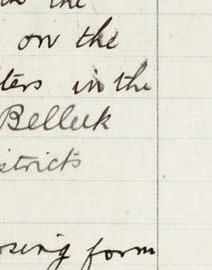 in the
on the
ters in the
Belleek
stricts
osing form